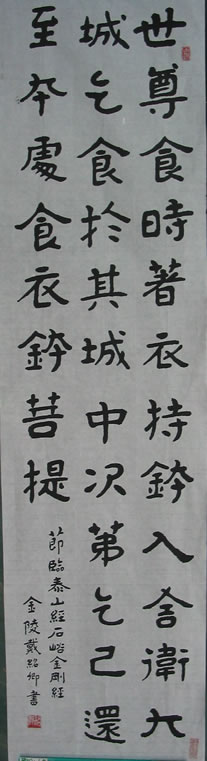 世尊食時著衣持鉢入舍衛大
城乞食於其城中次第乞已還
至本處食衣鉢菩提
節臨泰山經石峪金剛經
金陵戴紹卿書